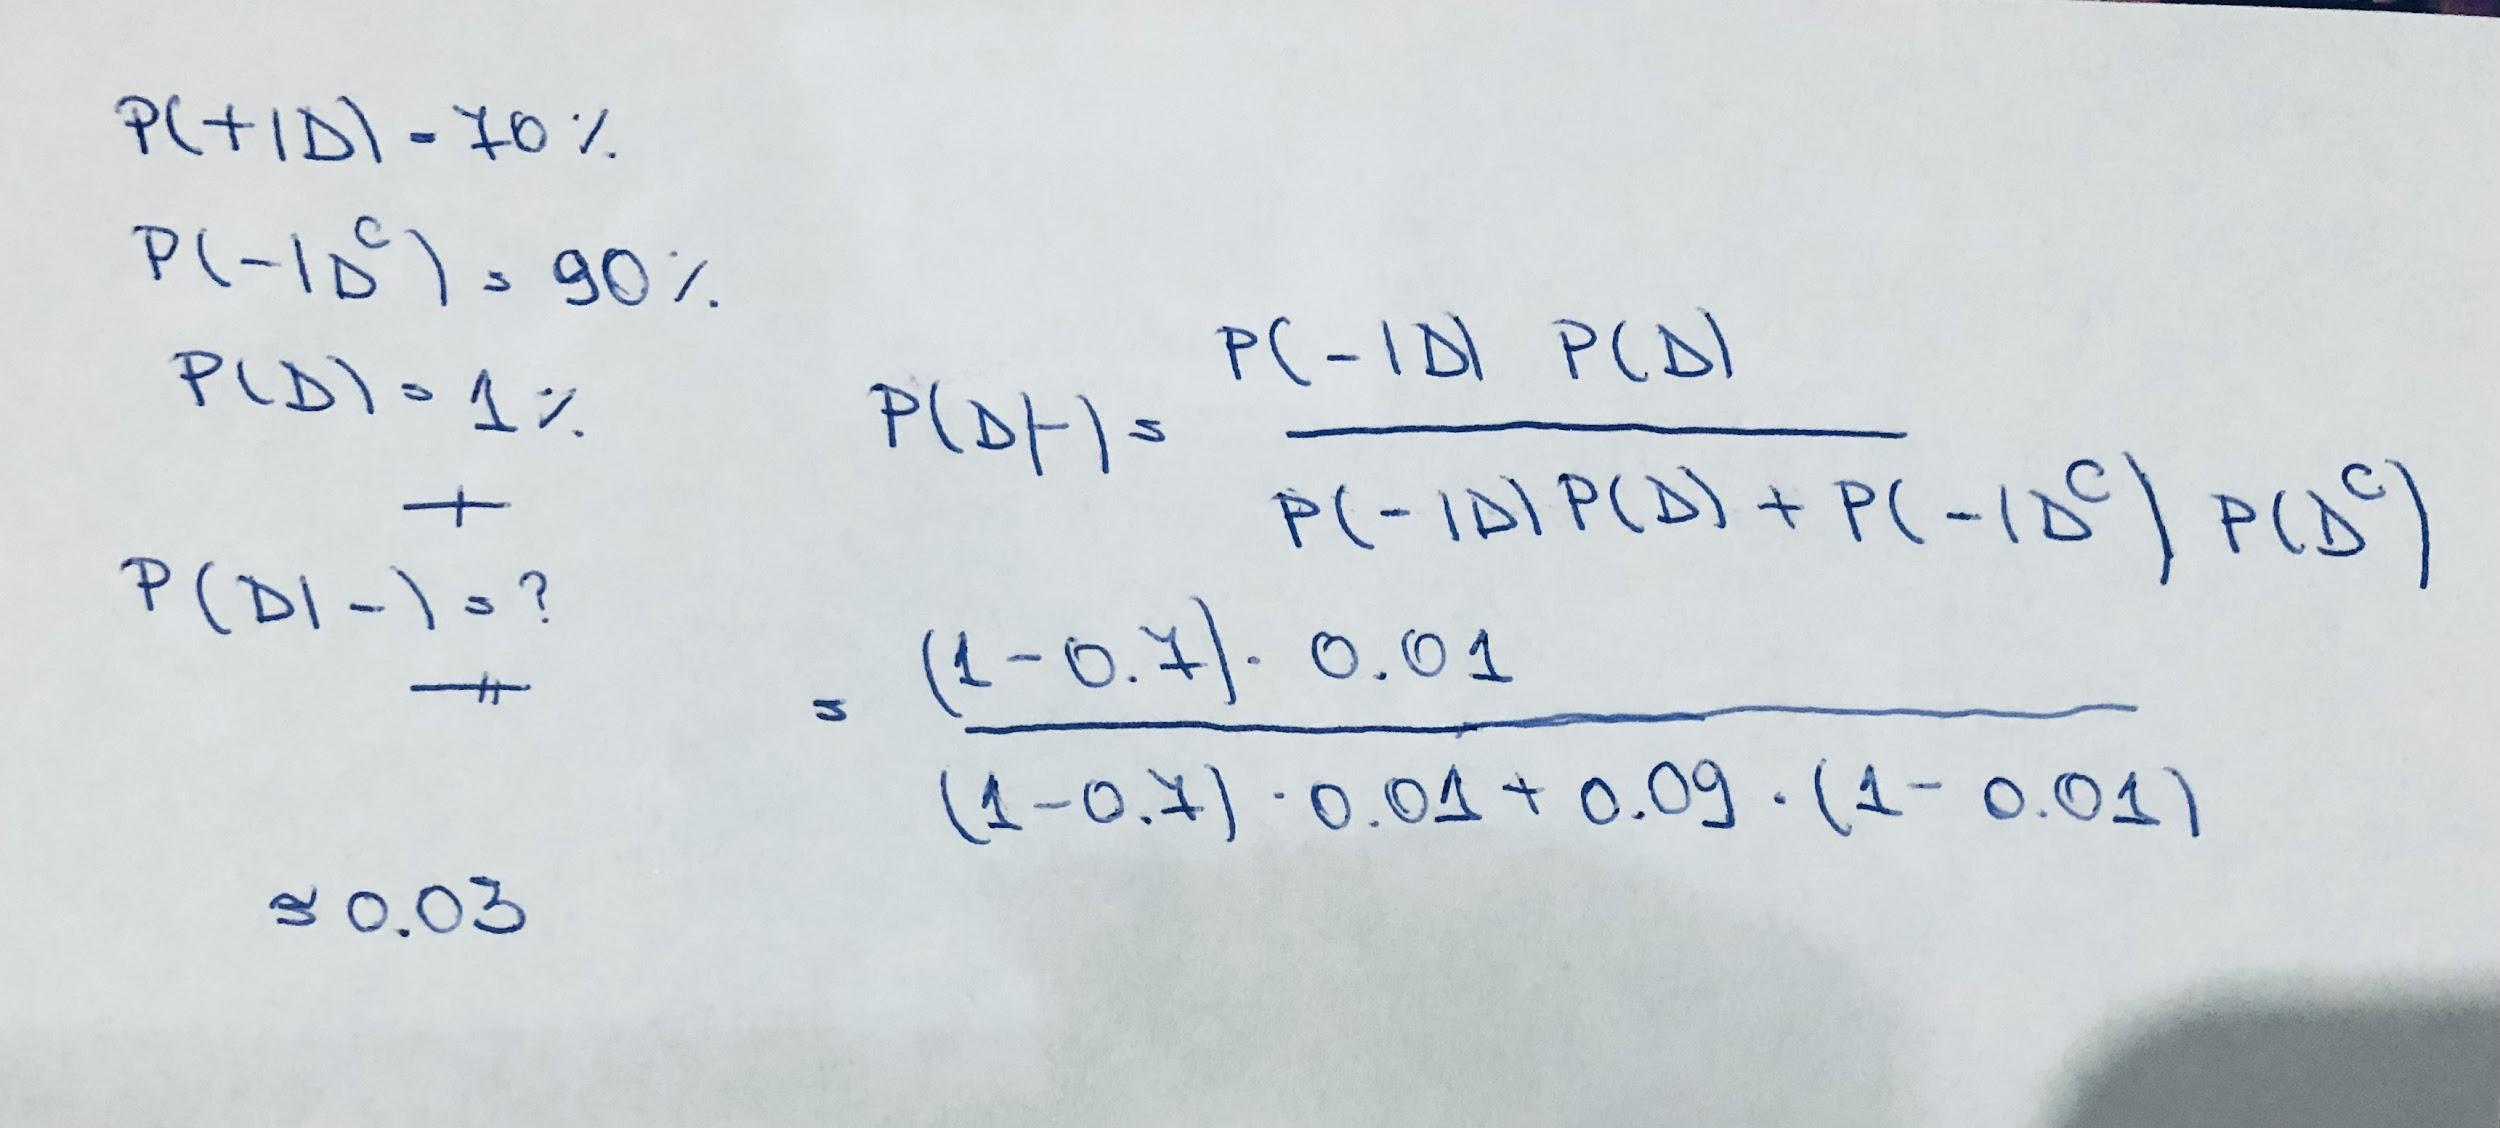 P(+|D) = 70%
P(-|D^C) = 90%
P(D) = 1%
P(D|-) = ?
P(D|-) = P(-|D) P(D)
P(-|D) P(D) + P(-|D^C) P(D^C)
= (1-0.7) · 0.01
(1-0.7) · 0.01 + 0.09 · (1-0.01)
≈ 0.03